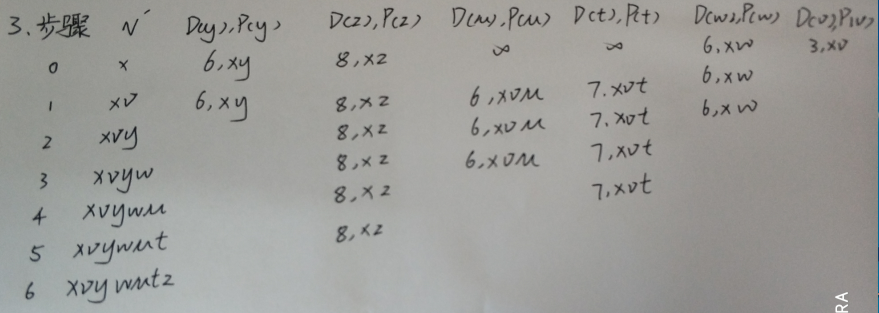 3. 步骤 N' D(y),P(y) D(z),P(z) D(u),P(u) D(t),P(t) D(w),P(w) D(v),P(v)
0 x 6,xy 8,xz ∞ ∞ 6,xw 3,xv
1 xv 6,xy 8,xz 6,xvu 7.xvt 6,xw
2 xvy 8,xz 6,xvu 7.xvt 6,xw
3 xvyw 8,xz 6,xvu 7,xvt
4 xvywu 8,xz 7,xvt
5 xvywut 8,xz
6 xvywutz
RA